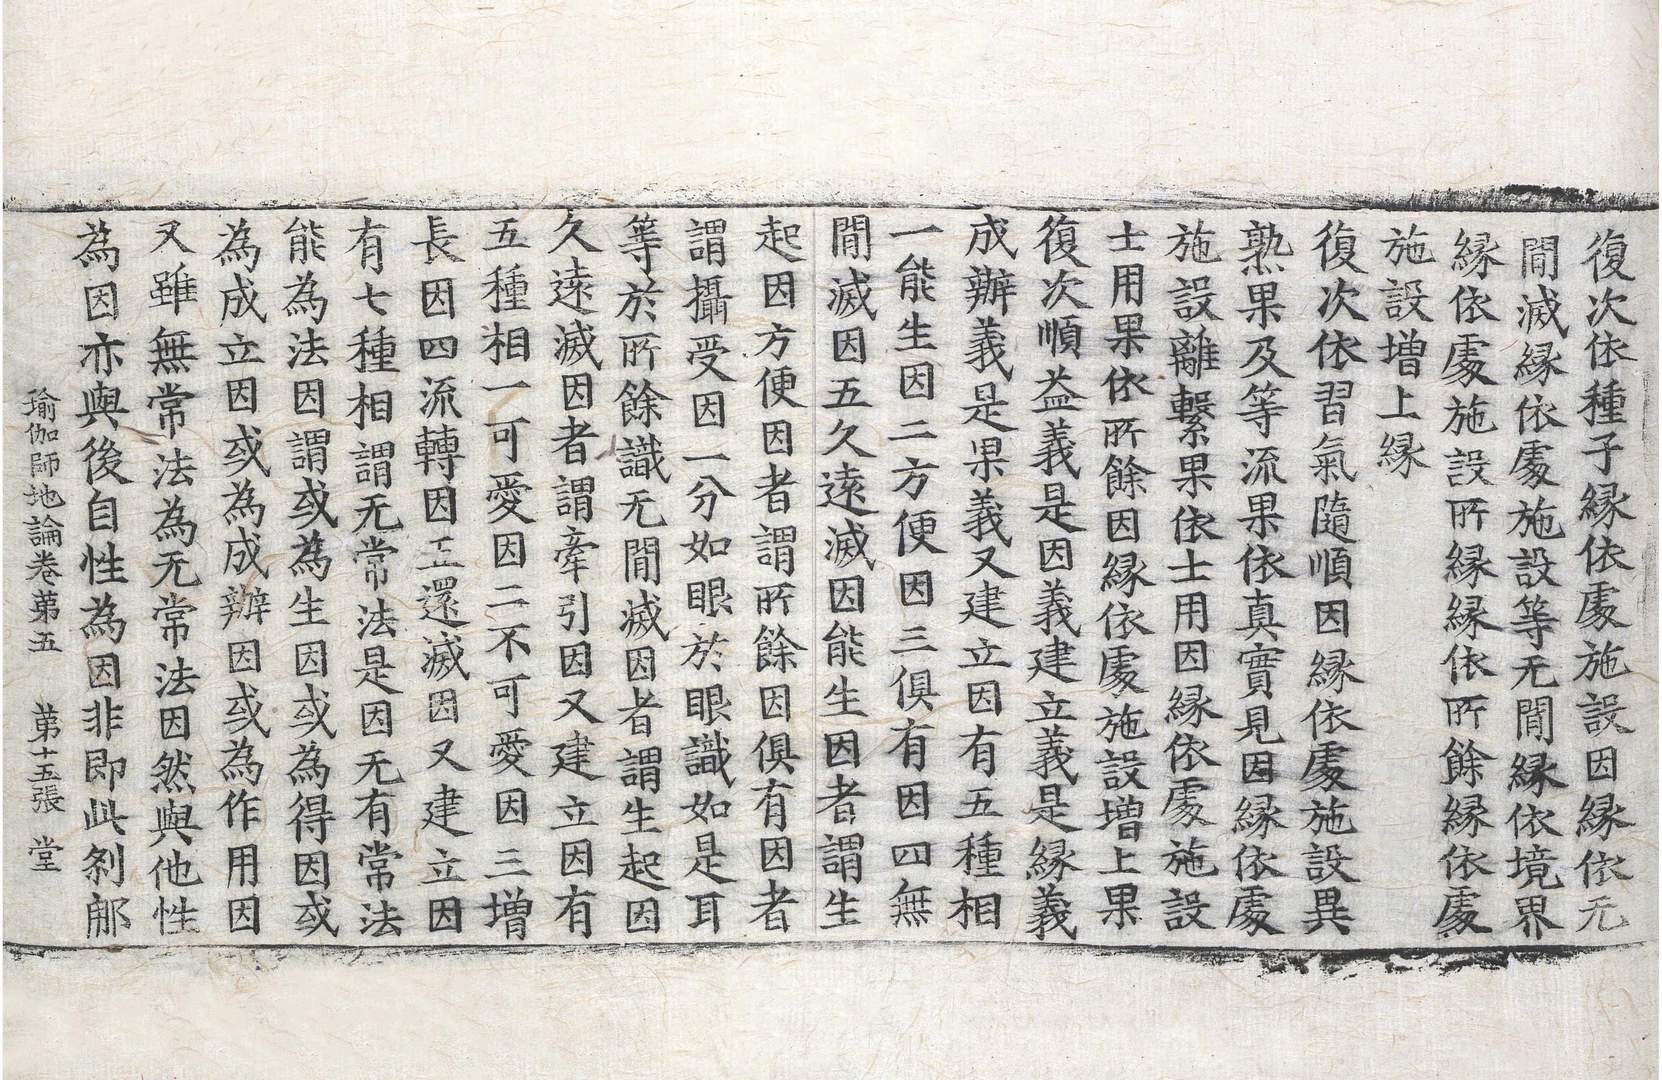 復次依種子縁依處施設因縁依无
間滅縁依處施設等无間縁依境界
縁依處施設所縁縁依所餘縁依處
施設增上縁
復次依習氣隨順因縁依處施設異
熟果及等流果依真實見因縁依處
施設離繫果依士用因縁依處施設
士用果依所餘因縁依處施設增上果
復次順益義是因義建立義是縁義
成辦義是果義又建立因有五種相
一能生因二方便因三俱有因四無
間滅因五久遠滅因能生因者謂生
起因方便因者謂所餘因俱有因者
謂攝受因一分如眼於眼識如是耳
等於所餘識无間滅因者謂生起因
久遠滅因者謂牽引因又建立因有
五種相一可愛因二不可愛因三增
長因四流轉因五還滅因又建立因
有七種相謂无常法是因无有常法
能為法因謂或為生因或為得因或
為成立因或為成辦因或為作用因
又雖無常法為无常法因然與他性
為因亦與後自性為因非即此刹那
瑜伽師地論卷苐五 苐十五張 堂